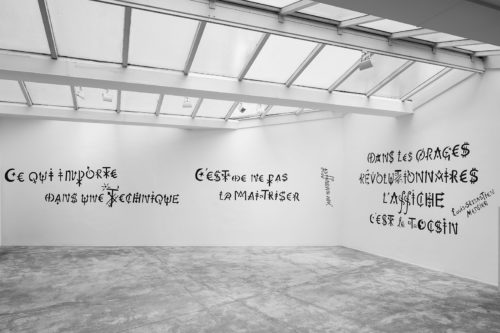 CE QUI IMPORTE
DANS UNE TECHNIQUE
C'EST DE NE PAS
LA MAITRISER
DANS LES ORAGES
RÉVOLUTIONNAIRES
L'AFFICHE
C'EST LE TOCSIN
LOUIS-SEBASTIEN
MERCIER